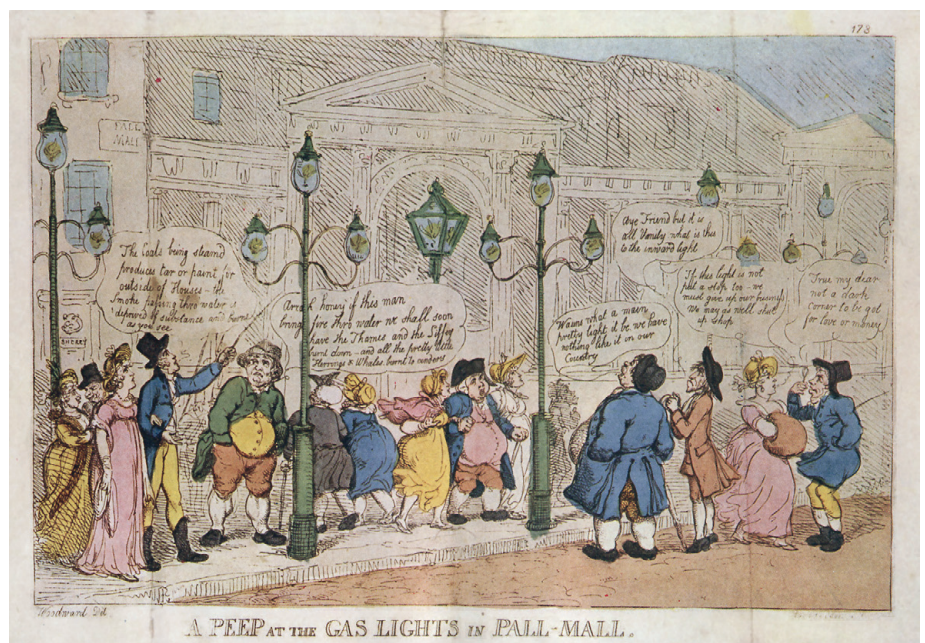 173
PALL
MALL
The Coals being steam'd
produces tar or paint for
outside of Houses - the
Smoke passing thro water is
deprived of substance and burns
as you see
Arrah honey if this man
bring fire thro water we shall soon
have the Thames and the Liffey
burnt down - and all the pretty little
Herrings & Whales burnt to cinders
Wauns what a main
pretty light it be we have
nothing like it in our
Country
Aye Friend but it is
all Vanity what is this
to the inward light
If this light is not
put a stop too - we
must give up our business
We may as well shut
up Shop
True my dear
not a dark
corner to be got
for love or money
Woodward Del
A PEEP AT THE GAS LIGHTS IN PALL-MALL.